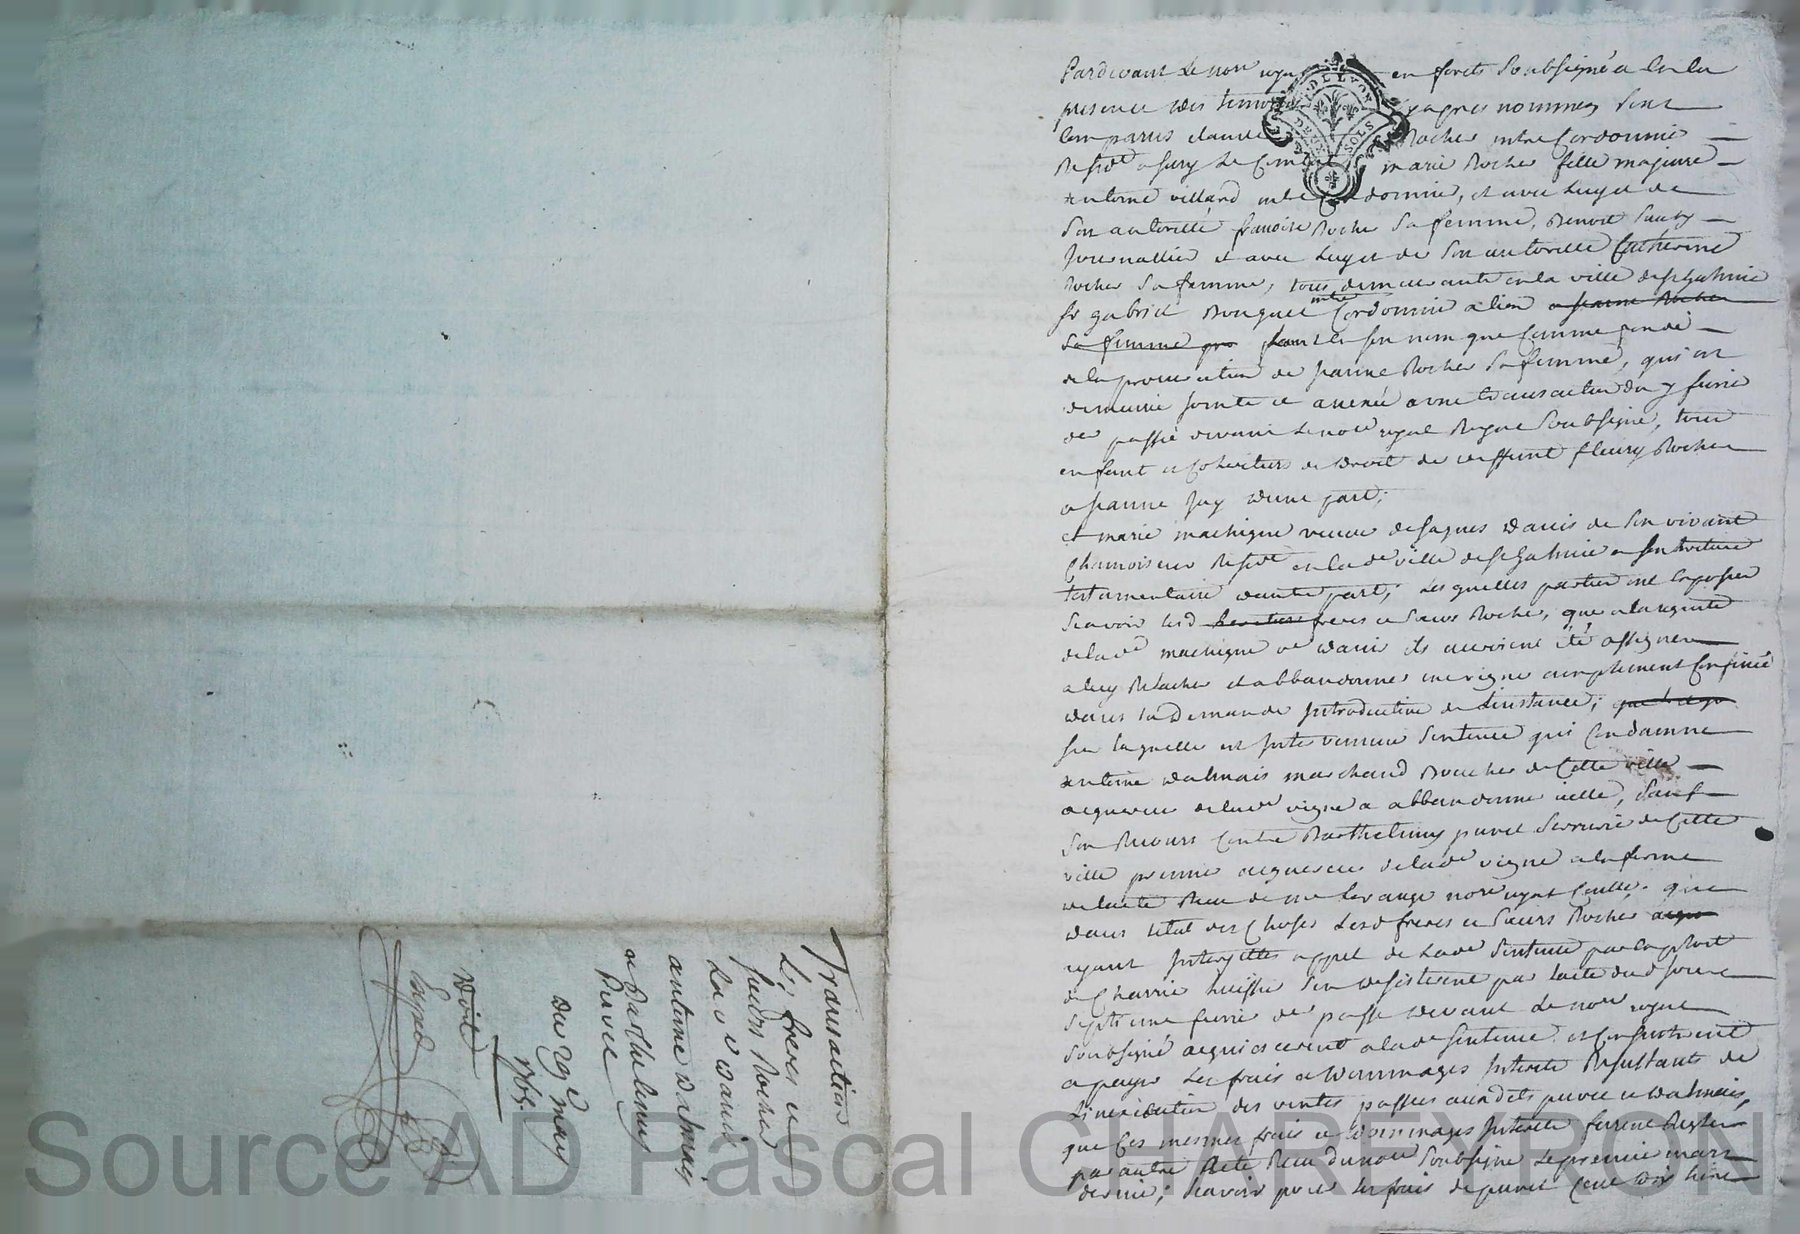 Pardevant le nore royal en forets soubsigné & en la
presence des temoins nommes sont
comparus claude Rocher mtre Cordonnier
Residt a Sury le Comtal, marie Rocher fille majeure
antoine villard mtre Cordonnier, et avec luy et de
son authorité francoise Rocher sa femme, Benoit
journallier et avec luy et de son authorité Catherine
Rocher sa femme, tous demeurants en la ville de st Galmier
sr gabriel Bouquet mtre Cordonnier a lion a jeanne Rocher
sa femme tant en son nom que comme fondé
de la procuration de jeanne Rocher sa femme, qui est
demeurée jointe et annexée a une transaction du 7 fevrier
der passée devant le nore royal Royal soubsigné, tous
enfants et Cohéritiers de droit de deffunt fleury Rocher
& jeanne d'une part;
et marie machigne veuve de jaques dauis de son vivant
Chamoiseur Residt en lade ville de st Galmier & son heritiere
testamentaire d'autre part; lesquelles parties ont exposées
scavoir lesd heritiers freres et sœurs Rocher, que a la requete
de lade machigne ve dauis ils auroient été assignés
a luy Relacher et abbandonner une vigne amplement Confinée
dans la demande introductive de l'instance;
sur laquelle est intervenue sentence qui Condamne
antoine dalmais marchand Boucher de Cette ville
acquereur de lade vigne a abbandonner icelle, sauf
son Recours Contre Barthelemy puvel serrurier de Cette
ville premier acquereur de lade vigne a la forme
de l'acte Reçu de me nore royal que
dans l'etat des Choses lesd freres et sœurs Rocher
ayant interjettés appel de lade sentence par exploit
de Charrie huissier s'en desisterent par l'acte dud jour
septieme fevrier der passé devant le nore royal
soubsigné acquiescerent a lade sentence et Consentirent
a payer les frais & dommages interets Resultants de
l'inexécution des ventes passées auxdits puvel et dalmais,
que Ces memes frais et dommages interets furent Reglés
par autre acte Reçu dud nore soubsigné le premier mars
dernier; scavoir pour les frais de puvel Cent dix livres
Transaction
Les freres et
sœurs Rocher
La ve dauis
antoine dalmais
& Barthelemy
Puvel
du 29e may
1765.
Doit
Exped
Source AD Pascal CHAREYRON